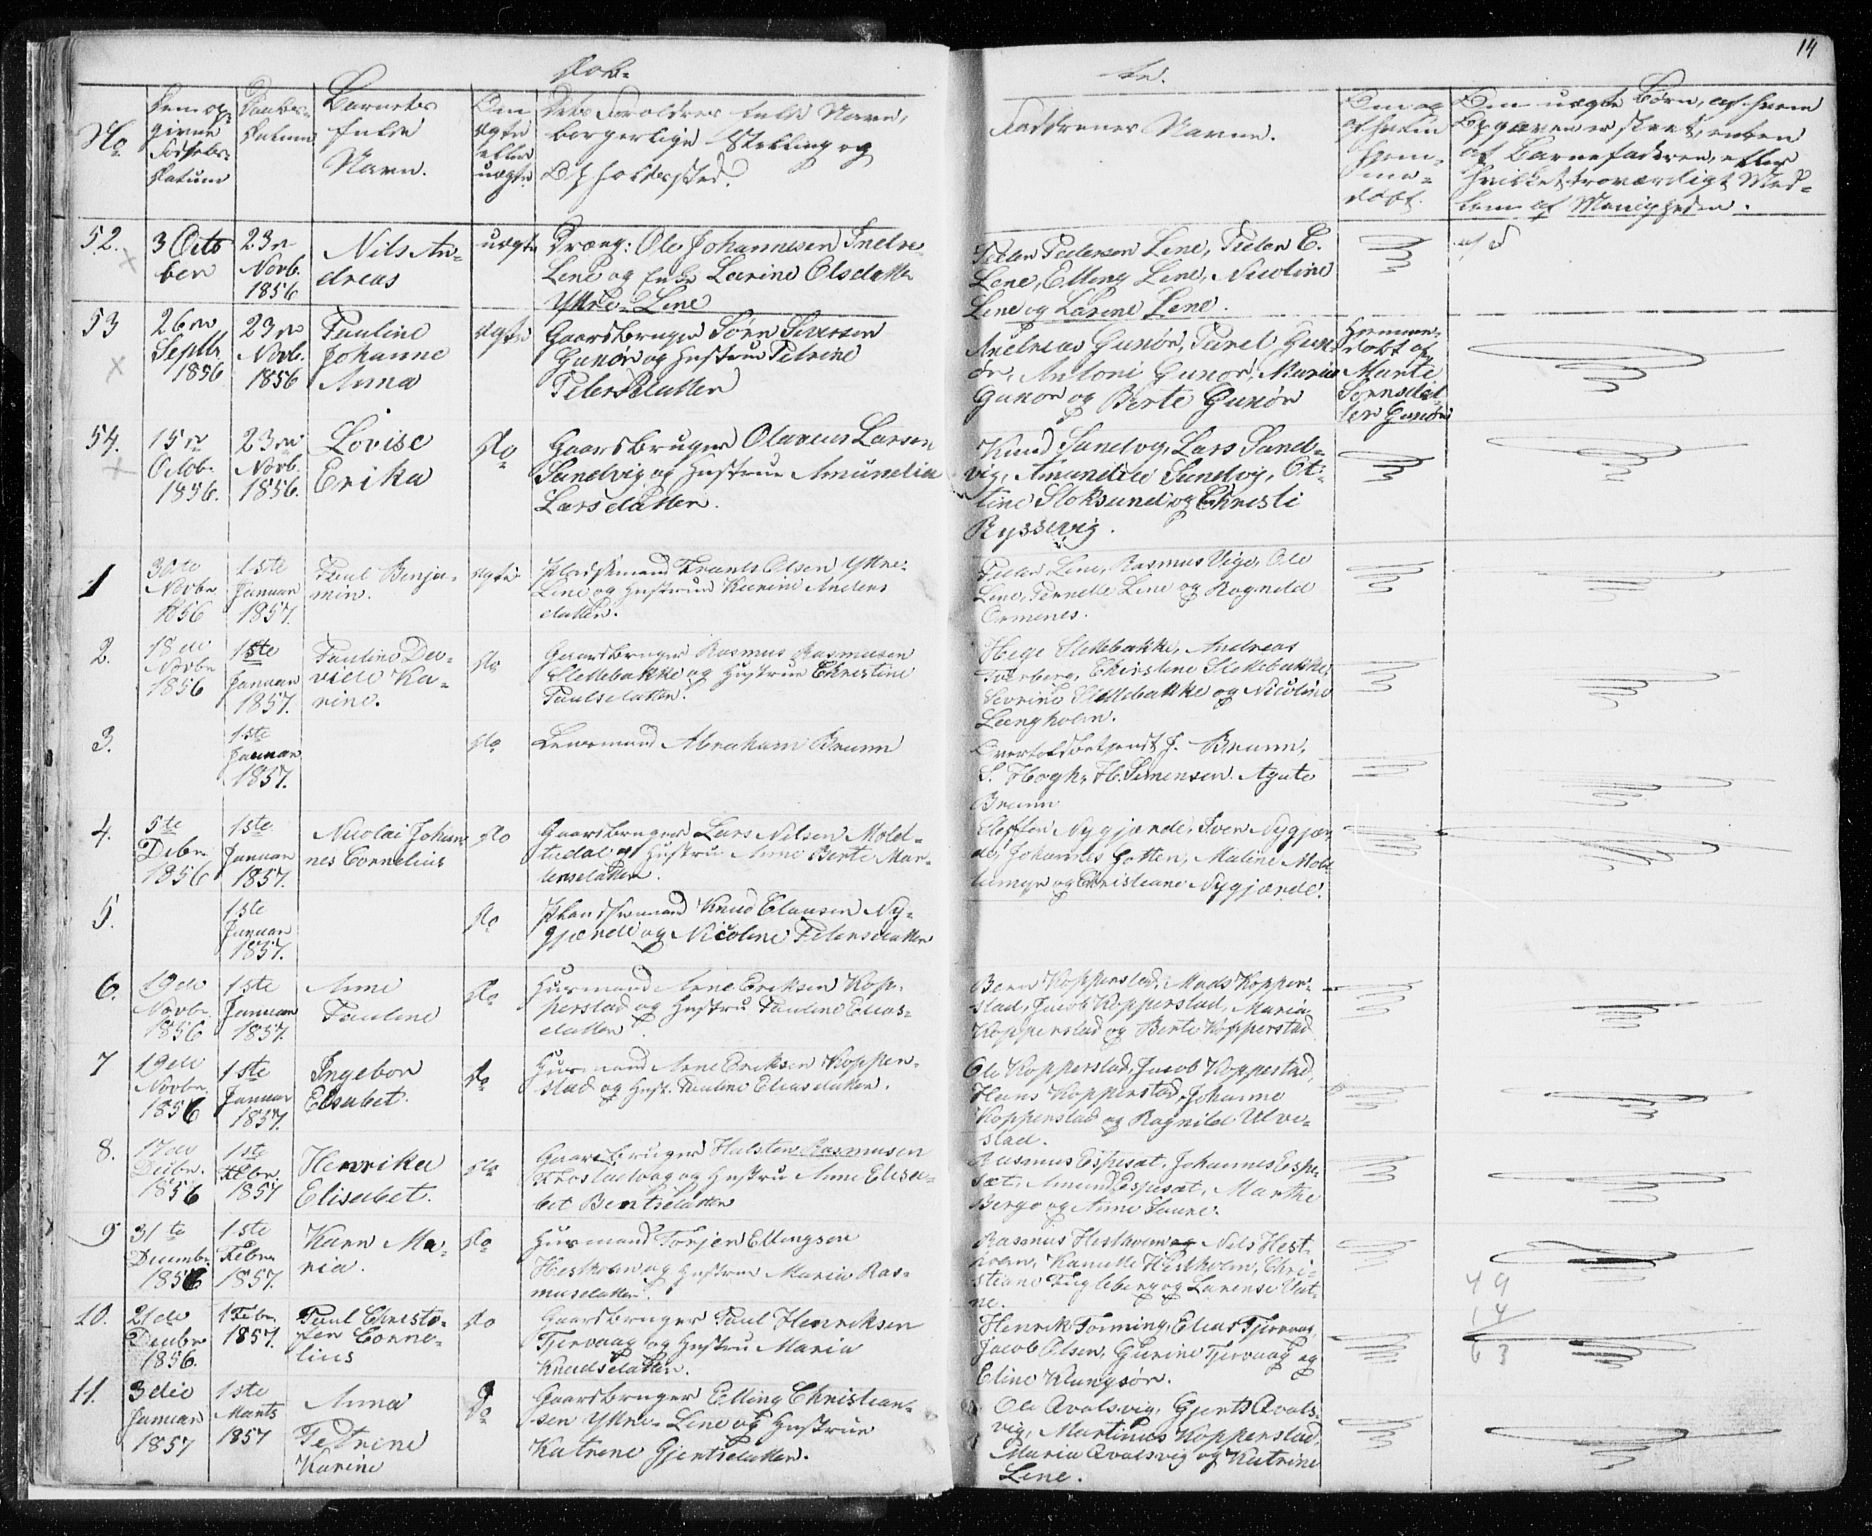 Døb-
te.
14
No
Den op-
givne
Fødsels-
datum
Daabs-
datum
Barnets
fulde
Navn.
Om
ægte
eller
uægte
Dets Foreldres fulde Navn,
borgerlige Stilling og
Opholdssted.
Faddrenes Navne.
Om og
af hvem
hjem-
me-
døbt.
Om uægte Børn, af hvem
Opgaven er skeet, enten
af Barnefaderen, eller
hvilket troværdigt Med-
lem af Menigheden.
52.
3 Octo
ber
23de
Novb.
1856
Nils An-
dreas
uægte
Dreng: Ole Johannesen Indre-
Lene og Enke Larine Olsdatter
Yttre-Lene
Peder Pedersen Lene, Peder E.
Lene, Elling Lene, Nicoline
Lene og Larine Lene.
53
26de
Septb
1856
23de
Novb.
1856
Pauline
Johanne
Anna
ægte
Gaardbruger Sørn Siversen
Gunør og Hustrue Petrine
Petersdatter
Andreas Gunør, Parel Gun
ør, Antoni Gunør, Marie
Gunør og Berte Gunør
Hjemme-
døbt af
Marite
Sørnsdat-
ter Gunør
54.
15de
Octob.
1856.
23de
Novb.
1856.
Lovise
Erika
do
Gaardsbruger Olareus Larsen
Sandvig og Hustrue Amundia
Larsdatter.
Knud Sandvig, Lars Sand-
vig, Amundia Sandvig, Ot-
tine Stoksund og Christi
Ryssevig.
1
30te
Novbr
1856
1ste
Januar
1857.
Paul Benja-
min.
ægte
Pladsemand Frants Olsen Yttre-
Lene og Hustrue Karine Anders
datter.
Peder Lene, Rasmus Vige, Ole
Lene, Pernelle Lene og Ragnilde
Ormenes.
2.
18de
Novbr
1856
1ste
Januar
1857.
Pauline Da-
vide Ka-
rine.
do
Gaardbruger Rasmus Rasmusen
Slettebakke og Hustrue Christine
Paulsdatter.
Hege Slettebakke, Andreas
Tverberg, Christine Slettebakke,
Severine Slettebakke og Nicoline
Langholm.
3.
1ste
Januar
1857.
do
Lensmand Abraham Brunn
Overtoldbetjent J. Brunn,
S. Høegh, H. Simensen. Agate
Brunn
4.
5te
Debr.
1856
1ste
Januar
1857.
Nicolai Johan-
nes Cornelius
do
Gaardbruger Lars Nilsen Mold-
tudal og Hustru Anne Berte Mar-
tensdatter.
Steffen Nygjærde, Iver Nygjær
de, Johannes Hotten, Maline Mold
temyr og Christiane Nygjærde.
5.
1ste
Januar
1857.
do
Plandsemand Knud Clausen Ny-
gjærde og Nicoline Petersdatter
6.
19de
Novbr
1856
1ste
Januar
1857.
Anne
Pauline
do
Husmand Arne Eriksen Kop-
perstad og Hustru Pauline Elias-
datter
Bern Kopperstad, Mads Kopper-
stad, Jacob Kopperstad, Maria
Kopperstad og Berte Kopperstad
7
19de
Novbr
1856
1ste
Januar
1857.
Ingebor
Elisabet.
do
Husmand Arne Eriksen Kopper-
stad og Hust. Pauline Eliasdatter.
Ole Kopperstad, Jacob Kopperstad,
Hans Kopperstad, Johanne
Kopperstad og Ragnild Ulve-
stad.
8.
17de
Debr.
1856
1ste
Febr.
1857
Henrika
Elisabet.
do
Gaardbruger Halsten Rasmusen
Frostadvaag og Hustru Anne Elisa-
bet Bentsdatter
Rasmus Espeset, Johannes Espe-
sæt, Amund Espesæt, Marthe
Berge og Anne Saure.
9
31te
Decembr.
1856
1ste
Febr.
1857.
Karn Ma-
ria.
do
Husmand Torjer Ellingsen
Hestholm og Hustrue Maria Ras-
musdatter.
Rasmus Hestholm og Nils Hest-
holm, Kanutte Hestholm, Chri-
stiane Fugleberg og Larense Vat-
ne.
49
14
63
10.
21de
Decbr
1856.
1 Febr
1857.
Paul Christo-
fer Corne-
lius
do
Gaardbruger Paul Henriksen
Tjervaag og Hustru Maria
Knudsdatter.
Henrik Tomming, Elias Tjervaag,
Jacob Olsen, Gurine Tjervaag og
Eline Klungsør.
11.
3die
Januar
1857
1ste
Marts
1857
Anna
Petrine
Karine
do
Gaardbruger Elling Christian-
sen Yttre-Lene og Hustrue
Katrine Gjertsdatter.
Ole Qvalsvig, Gjert Qvals-
vig, Martinus Kopperstad,
Maria Qvalsvig og Katrine
Lene.